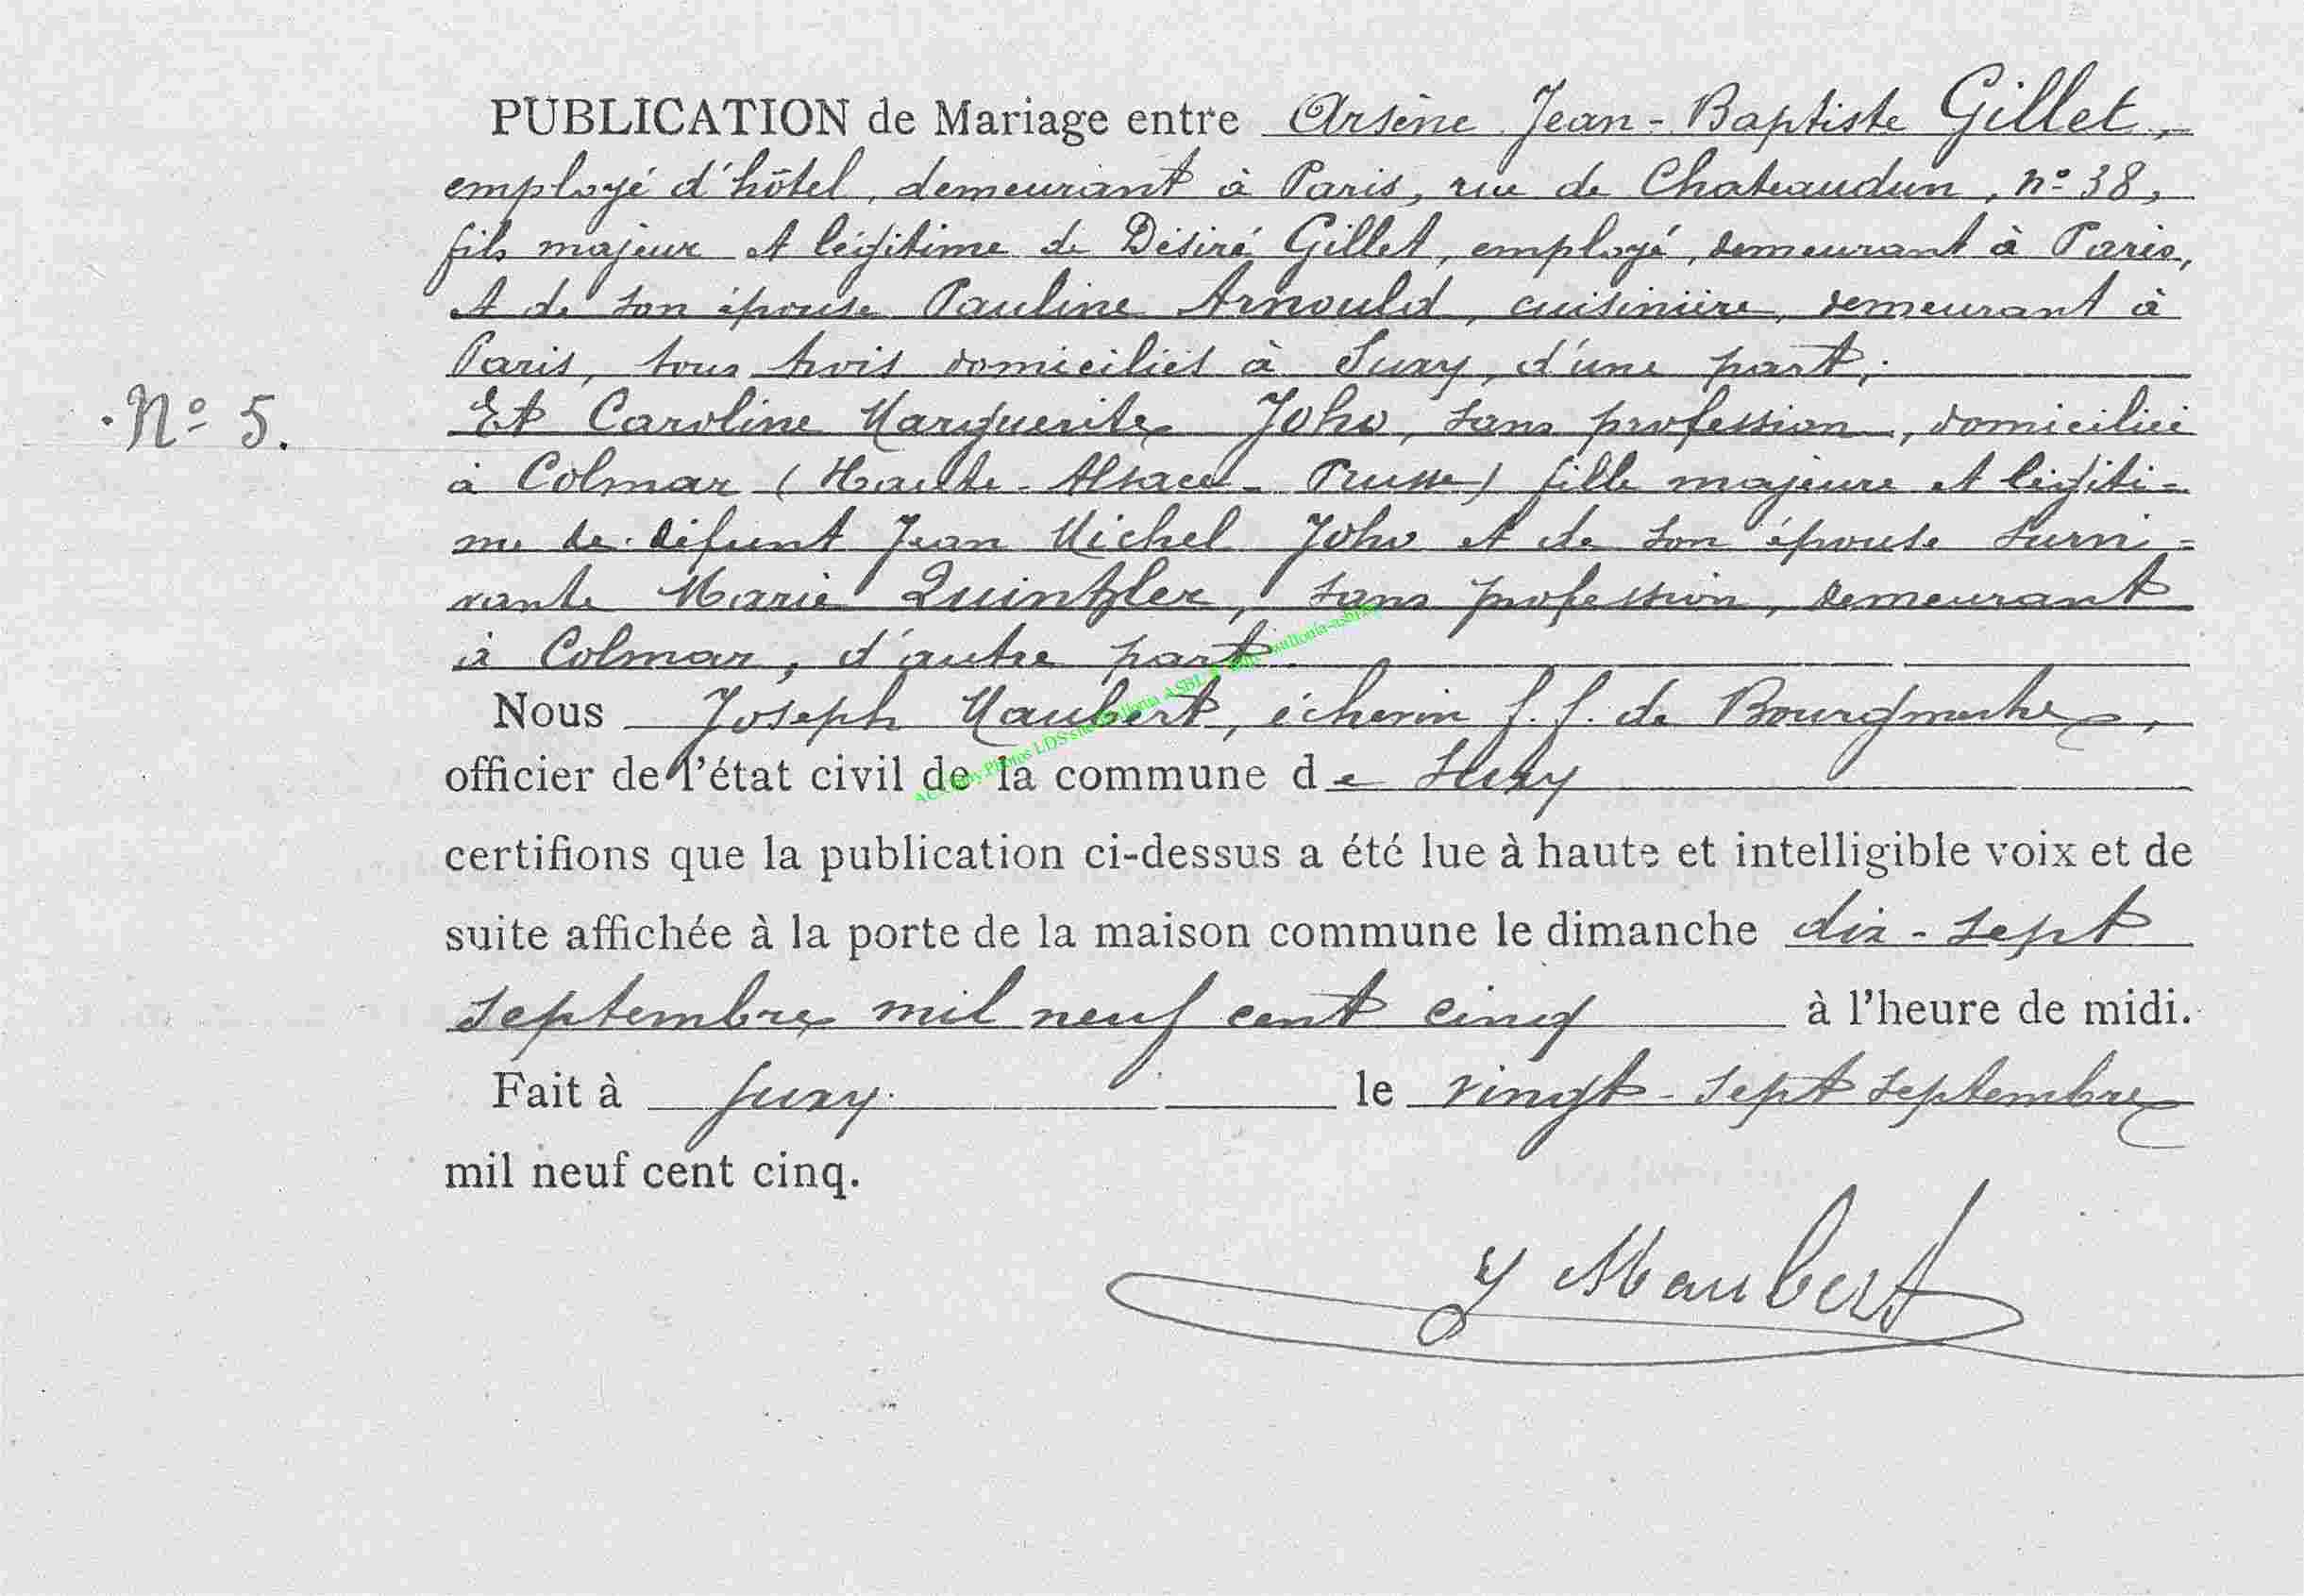 PUBLICATION de Mariage entre Arsène Jean-Baptiste Gillet,
employé d'hôtel, demeurant à Paris, rue de Chateaudun, n° 38,
fils majeur et légitime de Désiré Gillet, employé, demeurant à Paris,
et de son épouse Pauline Arnould, cuisinière, demeurant à
Paris, tous trois domiciliés à Suxy, d'une part;
N° 5.
Et Caroline Marguerite Joho, sans profession, domiciliée
à Colmar (Haute-Alsace-Prusse) fille majeure et légiti=
me de défunt Jean Michel Joho et de son épouse survi=
vante Marie Quintzler, sans profession, demeurant
à Colmar, d'autre part.
Nous Joseph Maubert, échevin f.f. de Bourgmestre,
officier de l'état civil de la commune de Suxy
certifions que la publication ci-dessus a été lue à haute et intelligible voix et de
suite affichée à la porte de la maison commune le dimanche dix-sept
septembre mil neuf cent cinq à l'heure de midi.
Fait à Suxy. le vingt-sept septembre
mil neuf cent cinq.
J Maubert